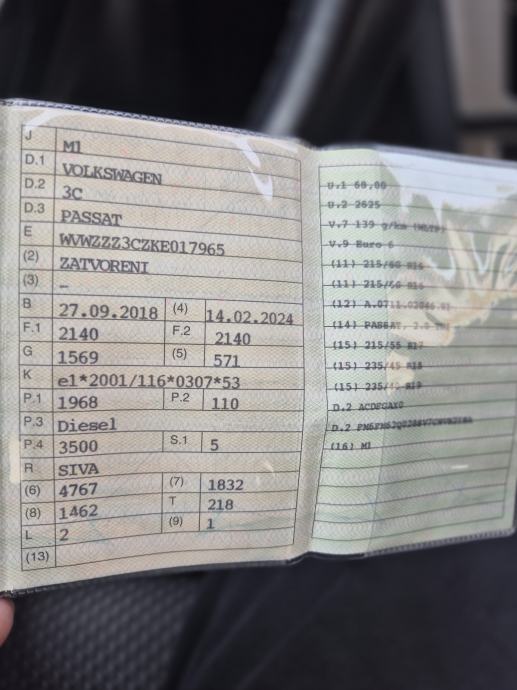 J M1
D.1 VOLKSWAGEN
D.2 3C
D.3 PASSAT
E WVWZZZ3CZKE017965
(2) ZATVORENI
(3) –
B 27.09.2018 (4) 14.02.2024
F.1 2140 F.2 2140
G 1569 (5) 571
K e1*2001/116*0307*53
P.1 1968 P.2 110
P.3 Diesel
P.4 3500 S.1 5
R SIVA
(6) 4767 (7) 1832
(8) 1462 T 218
L 2 (9) 1
(13)
U.1 68,00
U.2 2625
V.7 139 g/km (WLTP)
V.9 Euro 6
(11) 215/60 R16
(11) 215/60 R16
(12)
(14) PASSAT, 2.0
(15) 215/55 R17
(15) 235/45 R18
(15) 235/40 R19
D.2
D.2
(16) M1